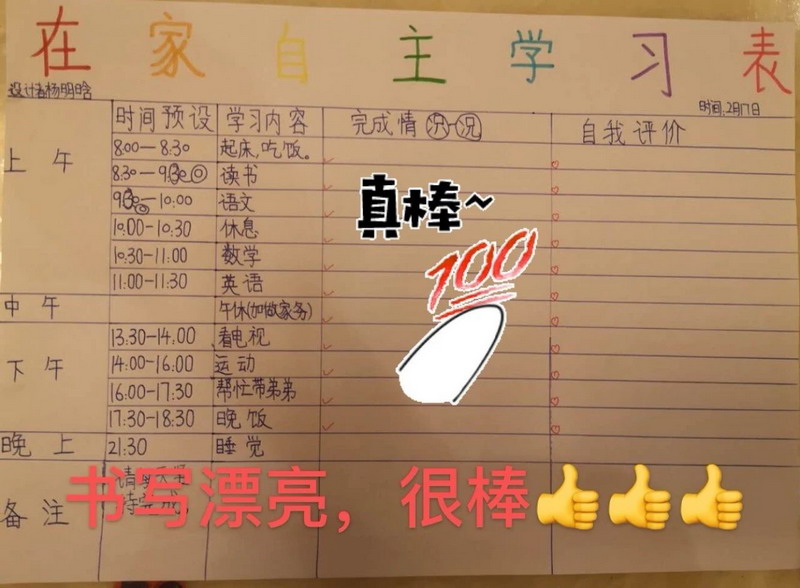 在家自主学习表
设计者杨明晗
时间:2月17日
时间预设 学习内容 完成情况 自我评价
上午
8:00—8:30 起床,吃饭。
8:30—9:30 读书
9:30—10:00 语文
10:00-10:30 休息
10:30-11:00 数学
11:00-11:30 英语
真棒~
100
中午 午休(加做家务)
下午
13:30-14:00 看电视
14:00-16:00 运动
16:00-17:30 帮忙带弟弟
17:30-18:30 晚饭
晚上 21:30 睡觉
备注
书写漂亮,很棒👍👍👍